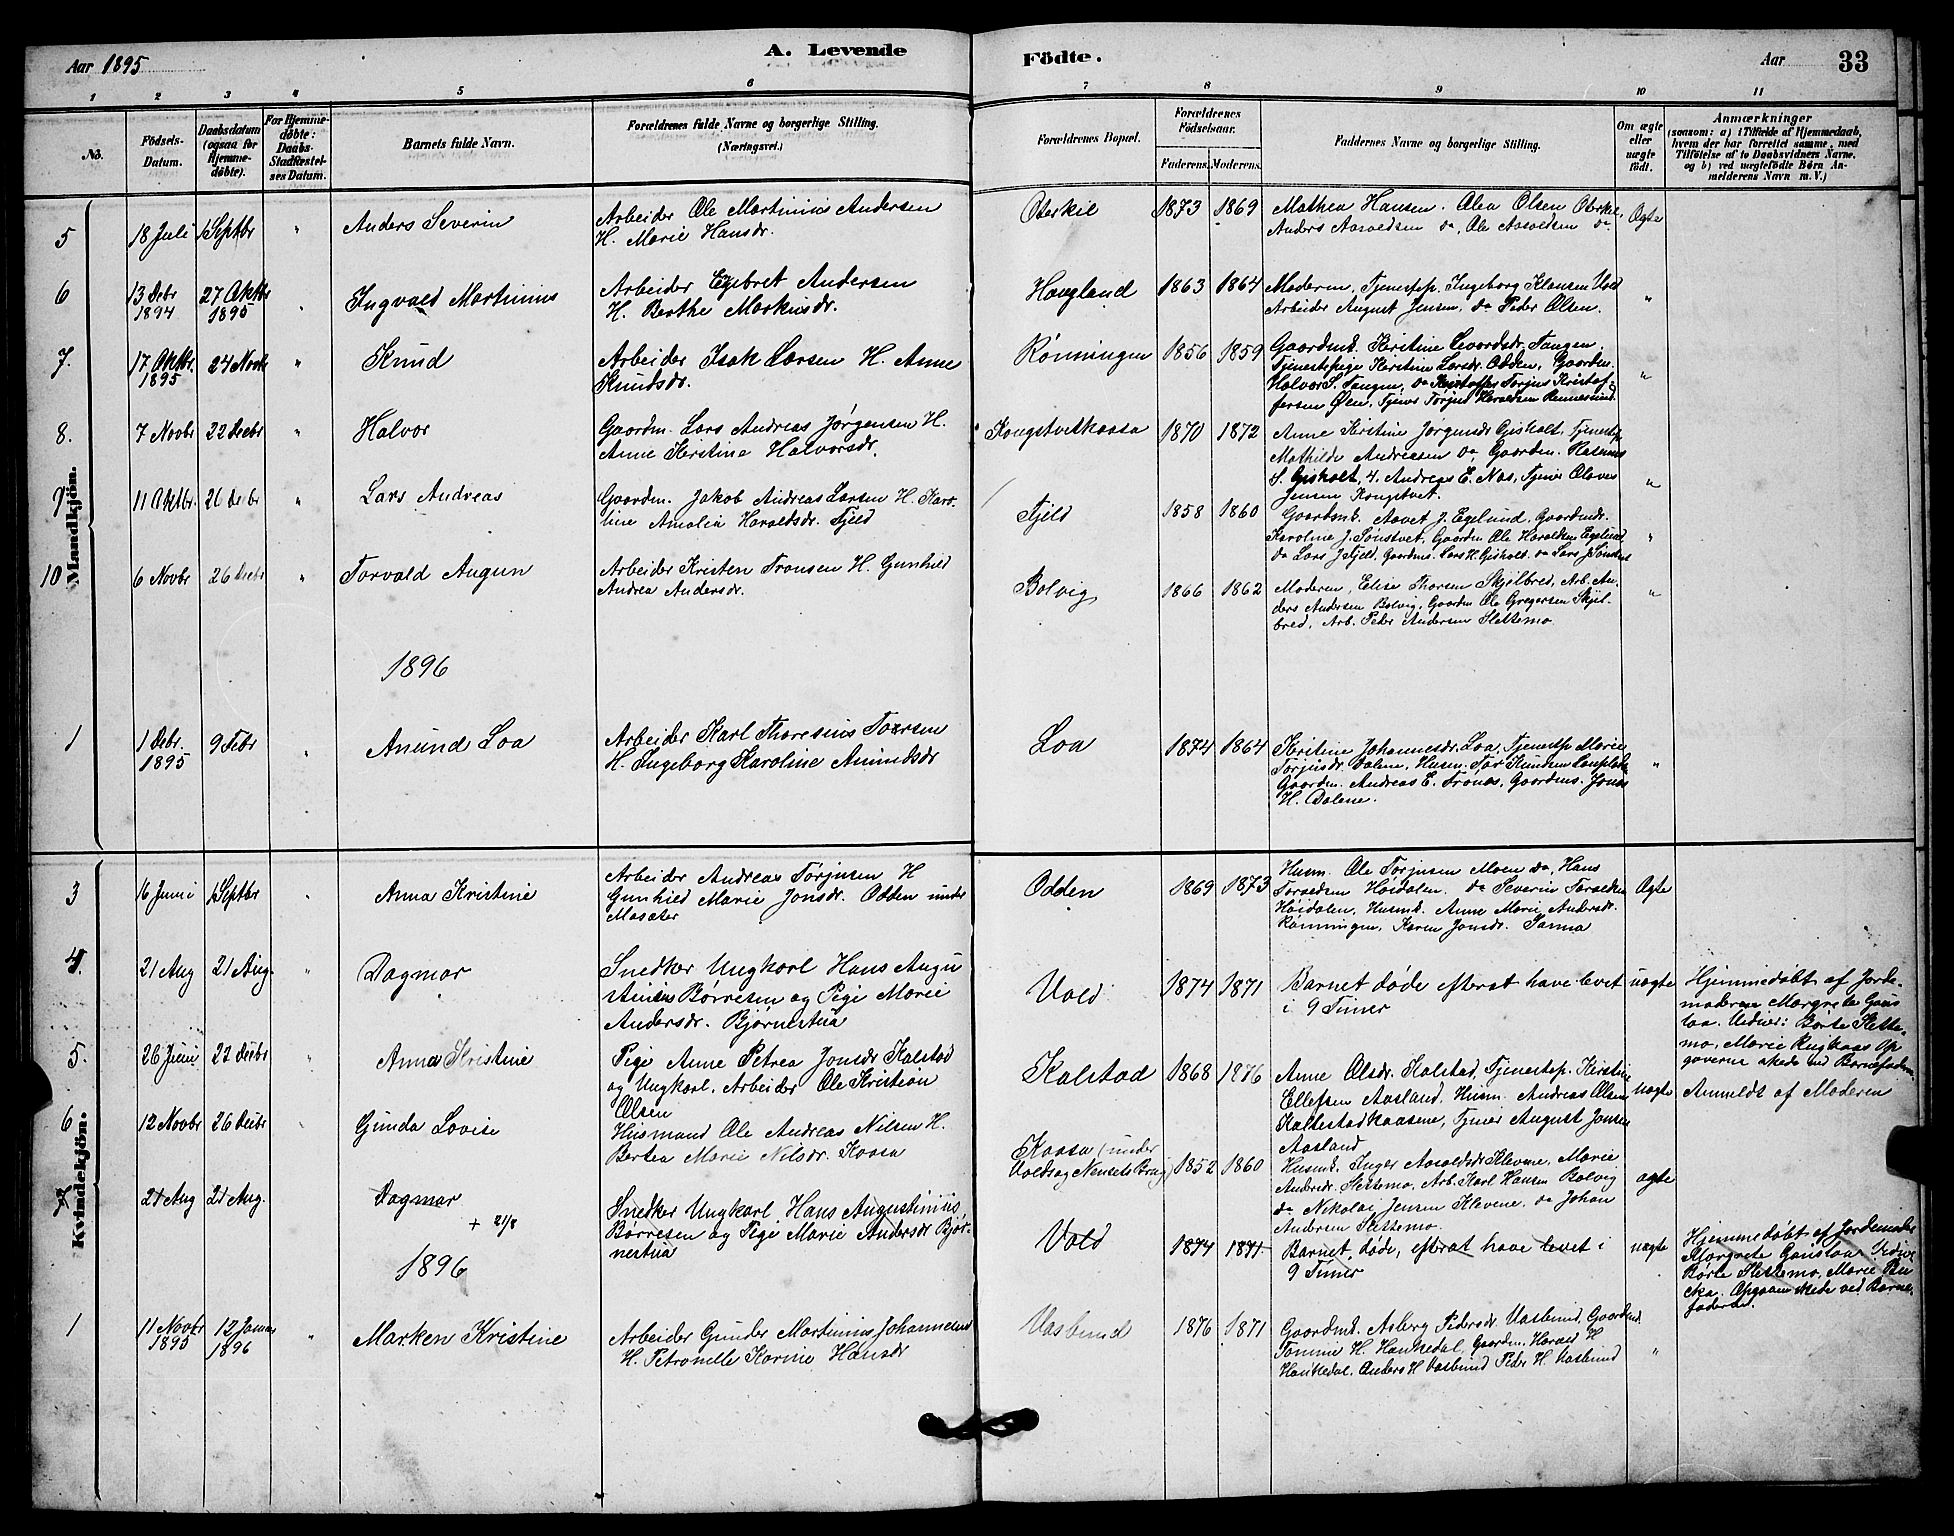 Aar 1895
A. Levende
Födte.
Aar
33
1 2 3 4 5 6 7 8 9 10 11
No.
Födsels-
Datum.
Daabsdatum
(ogsaa for
Hjemme-
døbte).
For Hjemme-
døbte:
Daabs-
Stadfæstel-
ses Datum.
Barnets fulde Navn.
Forældrenes fulde Navne og borgerlige Stilling.
(Næringsvei.)
Forældrenes Bopæl.
Forældrenes
Födselsaar.
Faderens. Moderens.
Faddernes Navne og borgerlige Stilling.
Om ægte
eller
uægte
födt.
Anmærkninger
(saasom: a) i Tilfælde af Hjemmedaab,
hvem der har forrettet samme, med
Tilföielse af to Daabsvidners Navne,
og b) ved uægtefödte Börn An-
melderens Navn m. V.)
Mandkjön.
5 18 Juli 1 Septbr " Anders Severin
Arbeider Ole Martinius Andersen
H. Marie Hansdr.
Oterkil 1873 1869
Mathea Hansen. Alea Olsen Oterkil,
Anders Aasoldsen do, Ole Aasoldsen do
Ægte
6 13 Debr 1894 27 Oktbr 1895 " Ingvald Martinius
Arbeider Egebret Andersen
H. Berthe Markusdr.
Haugland 1863 1864
Moderen, Tjenestep. Ingeborg Klausen Vold
Arbeider August Jensen, do Peder Olsen.
"
7. 17 Oktbr. 1895 24 Novbr " Knud
Arbeider Isak Larsen H. Anne
Knudsdr.
Rönningen 1856 1859
Gaardmk. Kirstine Evordsdr. Tangen.
Tjenestepige Kirstine Larsdr. Odden, Gaardm.
Halvor S. Tangen, do Torjus Kristof-
fersen Ølen, Tjener Torjus Haraldsen
"
8. 7 Novbr 22 Decbr " Halvor
Gaardm. Lars Andreas Jørgensen H.
Anne Kirstine Halvorsdr.
Kougstvetkaasa 1870 1872
Anne Kirstine Jörgensdr Gisholt, Tjenestep
Mathilde Andreasen do Gaardm. Rasmus
S. Gisholt, 4, Andreas E. Nas, Tjener Olaves
Jensen Kougstvet.
"
9 11 Oktbr. 26 Debr " Lars Andreas
Gaardm. Jakob Andreas Larsen H. Karo-
line Amalia Haraldsdr. Fjeld
Fjeld 1858 1860
Gaardmk. Aavet J. Egelund, Gaardmdr.
Karoline J. Tonstvet, Gaardm Ole Haraldsen Egelund
do Lars J Fjeld, Gaardms. Lars H. Gisholt do Lars J.
"
10 6 Novbr 26 Decbr " Torvald Augun
Arbeider Kristen Tronsen H. Gunhild
Andrea Andersdr.
Bolvig 1866 1862
Moderen, Elise Thorsen Skjelbred, Arb. An-
ders Andersen Bolvig, Gaardm Ole Gregersen Skjel-
bred, Arb. Peder Andersen Slettemo.
"
1896
1 1 Debr. 1895 9 Febr " Anund Loa
Arbeider Karl Thoresius Torsen
H. Ingeborg Karoline Anundsdr
Loa 1874 1864
Kirstine Johannesdr. Loa, Tjenestp Marie
Torjusdr. Dalene, Husm. Tor Knudsen
Gaardm. Andreas E. Tronas, Gaardms. Jonas
H. Dalene.
"
Kvindekjön.
3 16 Juni 1 Septbr " Anna Kristine
Arbeider Andreas Törjusen H
Gunhild Marie Jonsdr. Odden under
Masater
Odden 1869 1873
Husm. Ole Torjusen Moen do, Hans
Toroldsen Höidalen. do Severin Toroldsen
Höidalen, Husmk. Anne Marie Andersdr.
Rönningen, Karen Jonsdr. Sanna
Ægte
4. 21 Aug 21 Aug. " Dagmar
Snedker Ungkarl Hans Augu
stinius Børresen og Pige Marie
Andersdr. Bjørnestua
Vold 1874 1871
Barnet døde efterat have levet
i 9 Timer
uægte
Hjemmedøbt af Jorde-
moderen Margrete Gaus
taa. Vidner: Børte Slette-
mo, Marie Rugkaas Op-
gaverne skede ved Barnefaderen.
5. 26 Juni 22 Decbr " Anna Kristine
Pige Anne Petrea Jonsdr Kalstad
og Ungkarl, Arbeider Ole Kristian
Olsen
Kalstad 1868 1876
Anne Olsdr. Kalstad, Tjenestep. Kirstine
Ellefsen Aasland. Husm. Andreas Olsen
Kaltestadkaasene, Tjener August Jonsen
Aasland
uægte
Anmeldt af Moderen
6 12 Novbr 26 Decbr Gunda Lovise
Husmand Ole Andreas Nilsen H.
Bertea Marie Nilsdr. Kaasa
Kaasa (under
Voldrag Nensets Brug) 1852 1860
Husmk. Inger Aasoldsdr Klevene, Marie
Andersdr. Slettemo, Arb. Karl Hansen Bolvig
do Nikolai Jensen Klevene, do Johan
Andersen Slettemo.
ægte
7 21 Aug 21 Aug. Dagmar
+ 21/8
Snedker Ungkarl Hans Augustinius
Børresen og Pige Marie Andersdr Björ-
nestua
Vold 1874 1871
Barnet døde, efterat have levet i
9 Timer
uægte
Hjemmedøbt af Jordemoder
Margrete Gaustaa Vidner
Børte Slettemo, Marie
Opgaven skede ved Barne-
faderen.
1896
1 11 Novbr 1895 12 Januar 1896 " Marken Kristine
Arbeider Gunder Martinius Johannesen
H. Petronelle Karine Hansdr
Vasbund 1876 1871
Gaardmk. Asberg Pedersdr. Vasbund, Gaardmd
Tomine H. Haukedal, Gaardm. Harald H
Haukedal, Anders H Vasbund Peder H. Vasbund
"